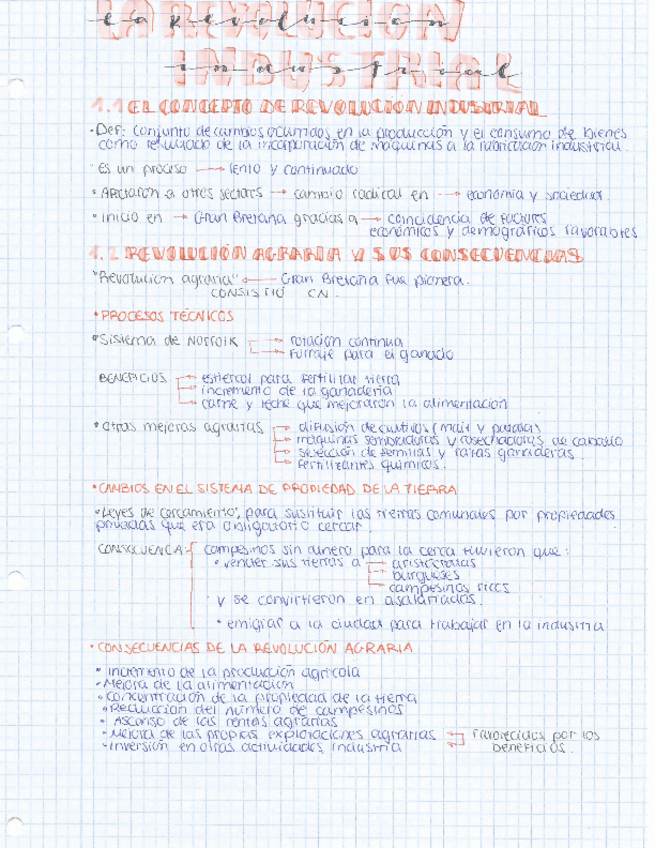 LA REVOLUCIÓN
la revolución
INDUSTRIAL
industrial
1.1 EL CONCEPTO DE REVOLUCIÓN INDUSTRIAL
· Def: conjunto de cambios ocurridos en la producción y el consumo de bienes
como resultado de la incorporación de máquinas a la fabricación industrial.
· Es un proceso → lento y continuado
· Afectaron a otros sectors → cambio radical en → economía y sociedad
· inicio en → Gran Bretaña gracias a → coincidencia de factores
económicos y demográficos favorables
1.2 REVOLUCIÓN AGRARIA Y SUS CONSECUENCIAS
"Revolución agraria" ← Gran Bretaña fue pionera.
CONSISTIÓ EN.
· PROCESOS TÉCNICOS
· Sistema de Norfolk → rotación continua
→ Forraje para el ganado
BENEFICIOS → estiércol para fertilizar tierra
→ incremento de la ganadería
→ carne y leche que mejoraron la alimentación
· Otras mejoras agrarias → difusión de cultivos (maíz y patata)
→ máquinas sembradoras y cosechadoras de caballo
→ selección de semillas y razas ganaderas
→ fertilizantes químicos.
· CAMBIOS EN EL SISTEMA DE PROPIEDAD DE LA TIERRA
· Leyes de cercamiento, para sustituir las tierras comunales por propiedades
privadas que era obligatorio cercar.
CONSECUENCIA: campesinos sin dinero para la cerca tuvieron que:
· vender sus tierras a → aristócratas
→ burgueses
→ campesinos ricos
· y se convirtieron en asalariados.
· emigrar a la ciudad para trabajar en la industria
· CONSECUENCIAS DE LA REVOLUCIÓN AGRARIA
· Incremento de la producción agrícola
· Mejora de la alimentación
· Concentración de la propiedad de la tierra
· Reducción del número de campesinos
· Ascenso de las rentas agrarias
· Mejora de las propias explotaciones agrarias → favorecidas por los
· Inversión en otras actividades, industria beneficios.